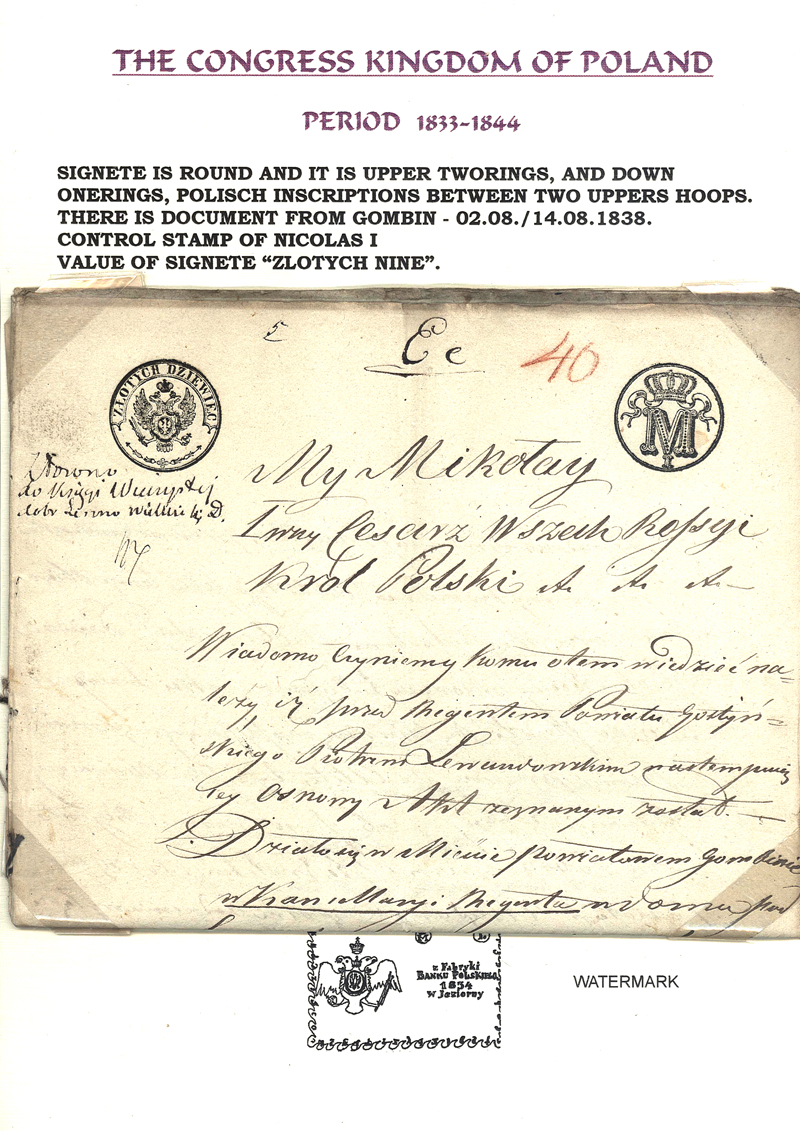 THE CONGRESS KINGDOM OF POLAND
PERIOD 1833-1844
SIGNETE IS ROUND AND IT IS UPPER TWORINGS, AND DOWN
ONERINGS, POLISCH INSCRIPTIONS BETWEEN TWO UPPERS HOOPS.
THERE IS DOCUMENT FROM GOMBIN - 02.08./14.08.1838.
CONTROL STAMP OF NICOLAS I
VALUE OF SIGNETE “ZLOTYCH NINE”.
5
Ee
40
ZŁOTYCH DZIEWIĘĆ
M
do Księgi
dobr
My Mikołay
I wszy Cesarz Wszech Rossyi
Król Polski
Wiadomo czyniemy komu otem wiedzieć na=
leży iż przed Regentem Powiatu Gostyń=
skiego Piotrem Lewandowskim następuią
cey Osnowy Akt zeznanym został. —
Działo się w Mieście Powiatowem Gombinie
w Kancellaryi Regenta w domu pod
z Fabryki
BANKU POLSKIEGO
1834
w Jeziorny
WATERMARK